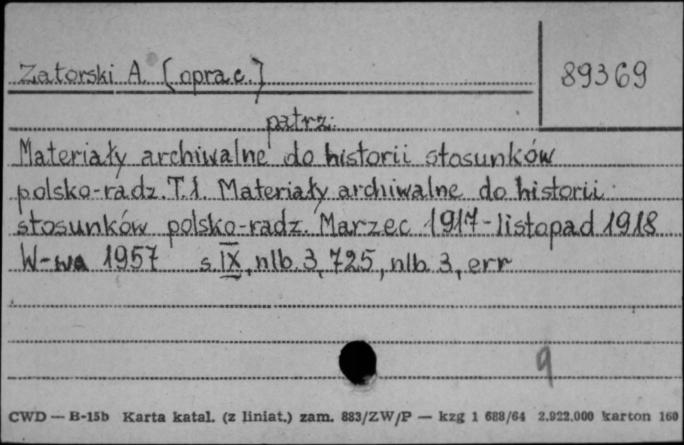 Zatorski A. [oprac.]
89369
patrz:
Materiały archiwalne do historii stosunków
polsko-radz. T.1. Materiały archiwalne do historii
stosunków polsko-radz. Marzec 1917-listopad 1918
W-wa 1957 s. IX, nlb. 3, 725, nlb. 3, err
9
CWD — B-15b Karta katal. (z liniat.) zam. 883/ZW/P — kzg 1 688/64 2.922.000 karton 160